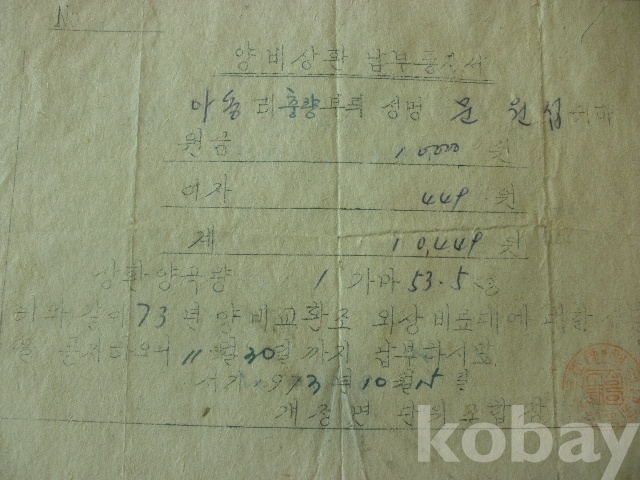 No.
양비상환 납부통지서
아동리 충량부락 성명 문원섭 귀하
원금 10,000 원
이자 449 원
계 10,449 원
상환양곡량 1 가마 53.5
하와 같이 73년 양비교환조 외상비료대에 대한
을 통지하오니 11월 30일까지 납부하시압
서기 1973년 10월 일
개정면 단위조합장
kobay